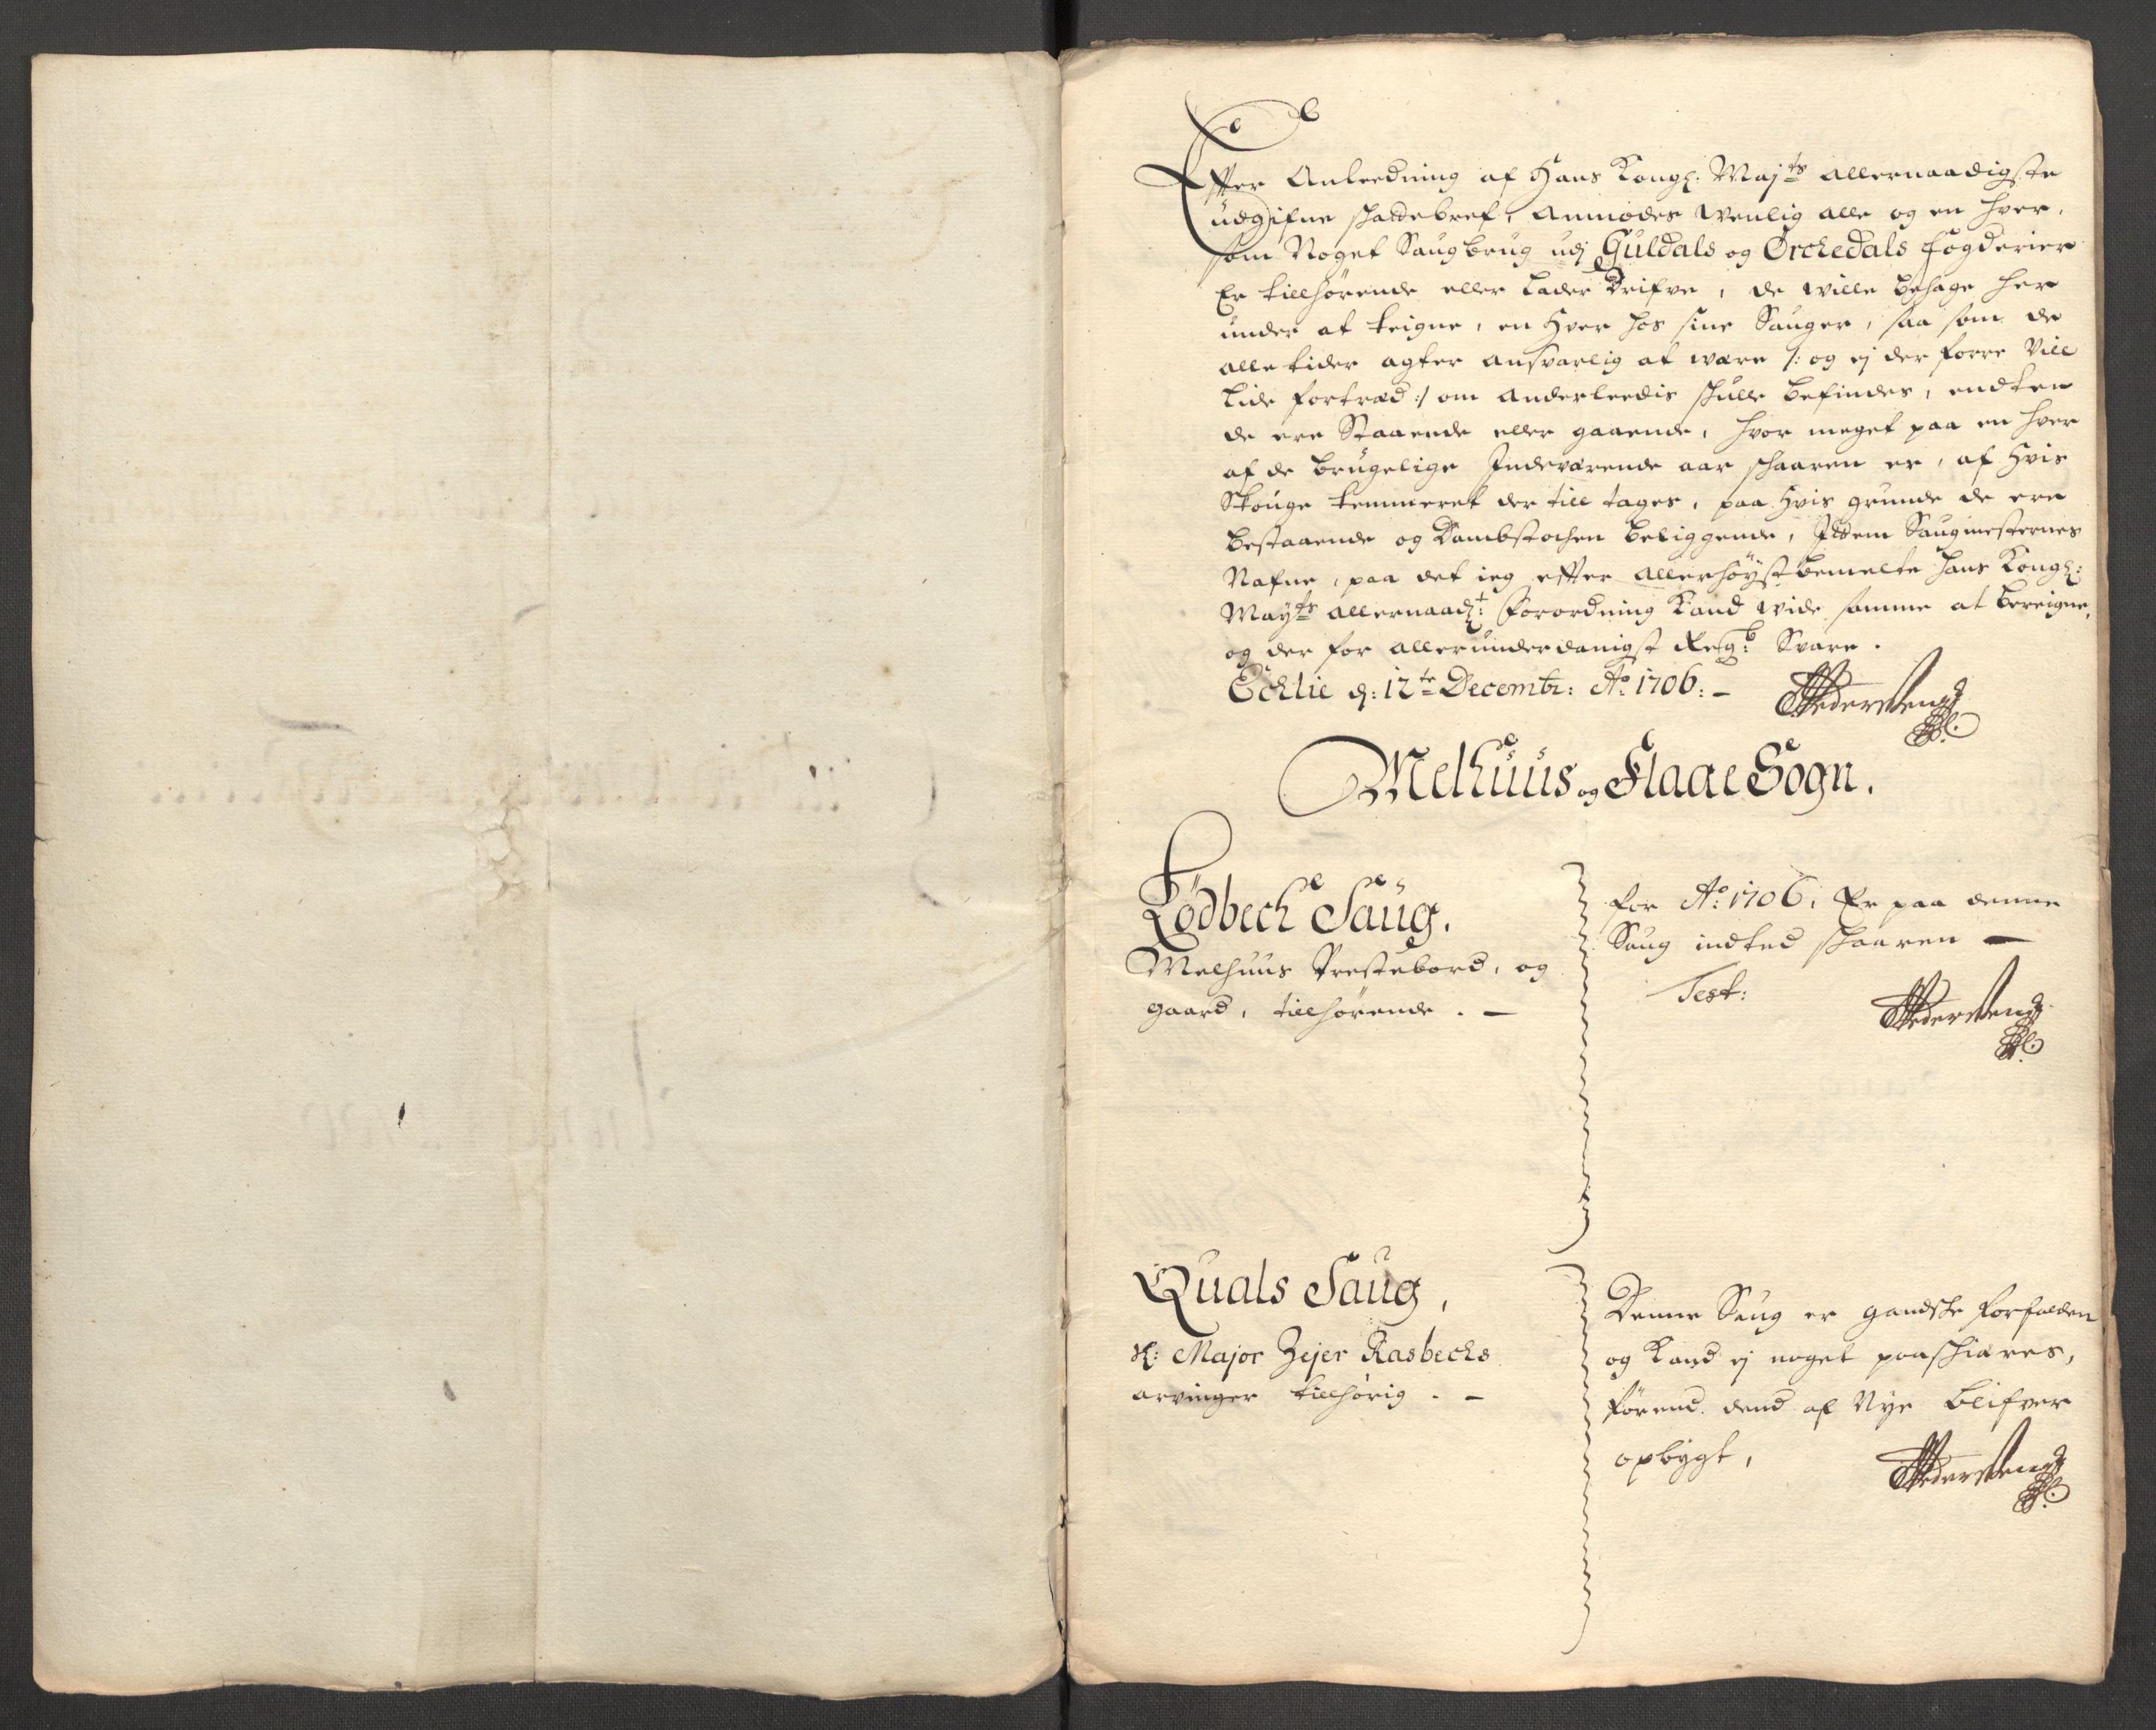 Effter Anleedning af Hans Kongl: Majts allernaadigste
udgifne schattebref, Anmodes wenlig alle og en hver,
som Noget Saugbrug udj Guldals og Orchedals fogderier
Er tillhørende eller lader Drifve, de wille behage her
under at teigne, en Hver hos sine Sauger, saa som de
alle tider agter ansvarlig at være /: og ej der forre vill
lide fortræd :/ om anderleedis schulle befindes, endten
de ere Staaende eller gaaende, hvor meget paa en hver
af de brugelige Indeværende aar schaaren er, af Hvis
Skouge temmeret der till tages, paa Hvis grunde de ere
bestaaende og Dambstochen beliggende, Item Saugmesternes
Nafne, paa det ieg effter allerhøystbemelte Hans Kongl:
Mayts allernaadt: forordning Kand wide samme at bereigne,
og der for allerunderdanigst Svare.
Echlie d: 12te Decembr: Ao 1706: –
Melhuus og Flaae Sogn.
Lødbech Saug.
Melhuus Prestebord, og
gaard, tillhørende. –
for Ao: 1706, Er paa denne
Saug indted schaaren –
Test:
Quals Saug,
Sl: Major Zejer Rasbechs
arvinger tillhørig. –
Denne Saug er gandske forfalden
og Kand ej noget paaschiæres,
førend dend af Nye blifver
opbygt,